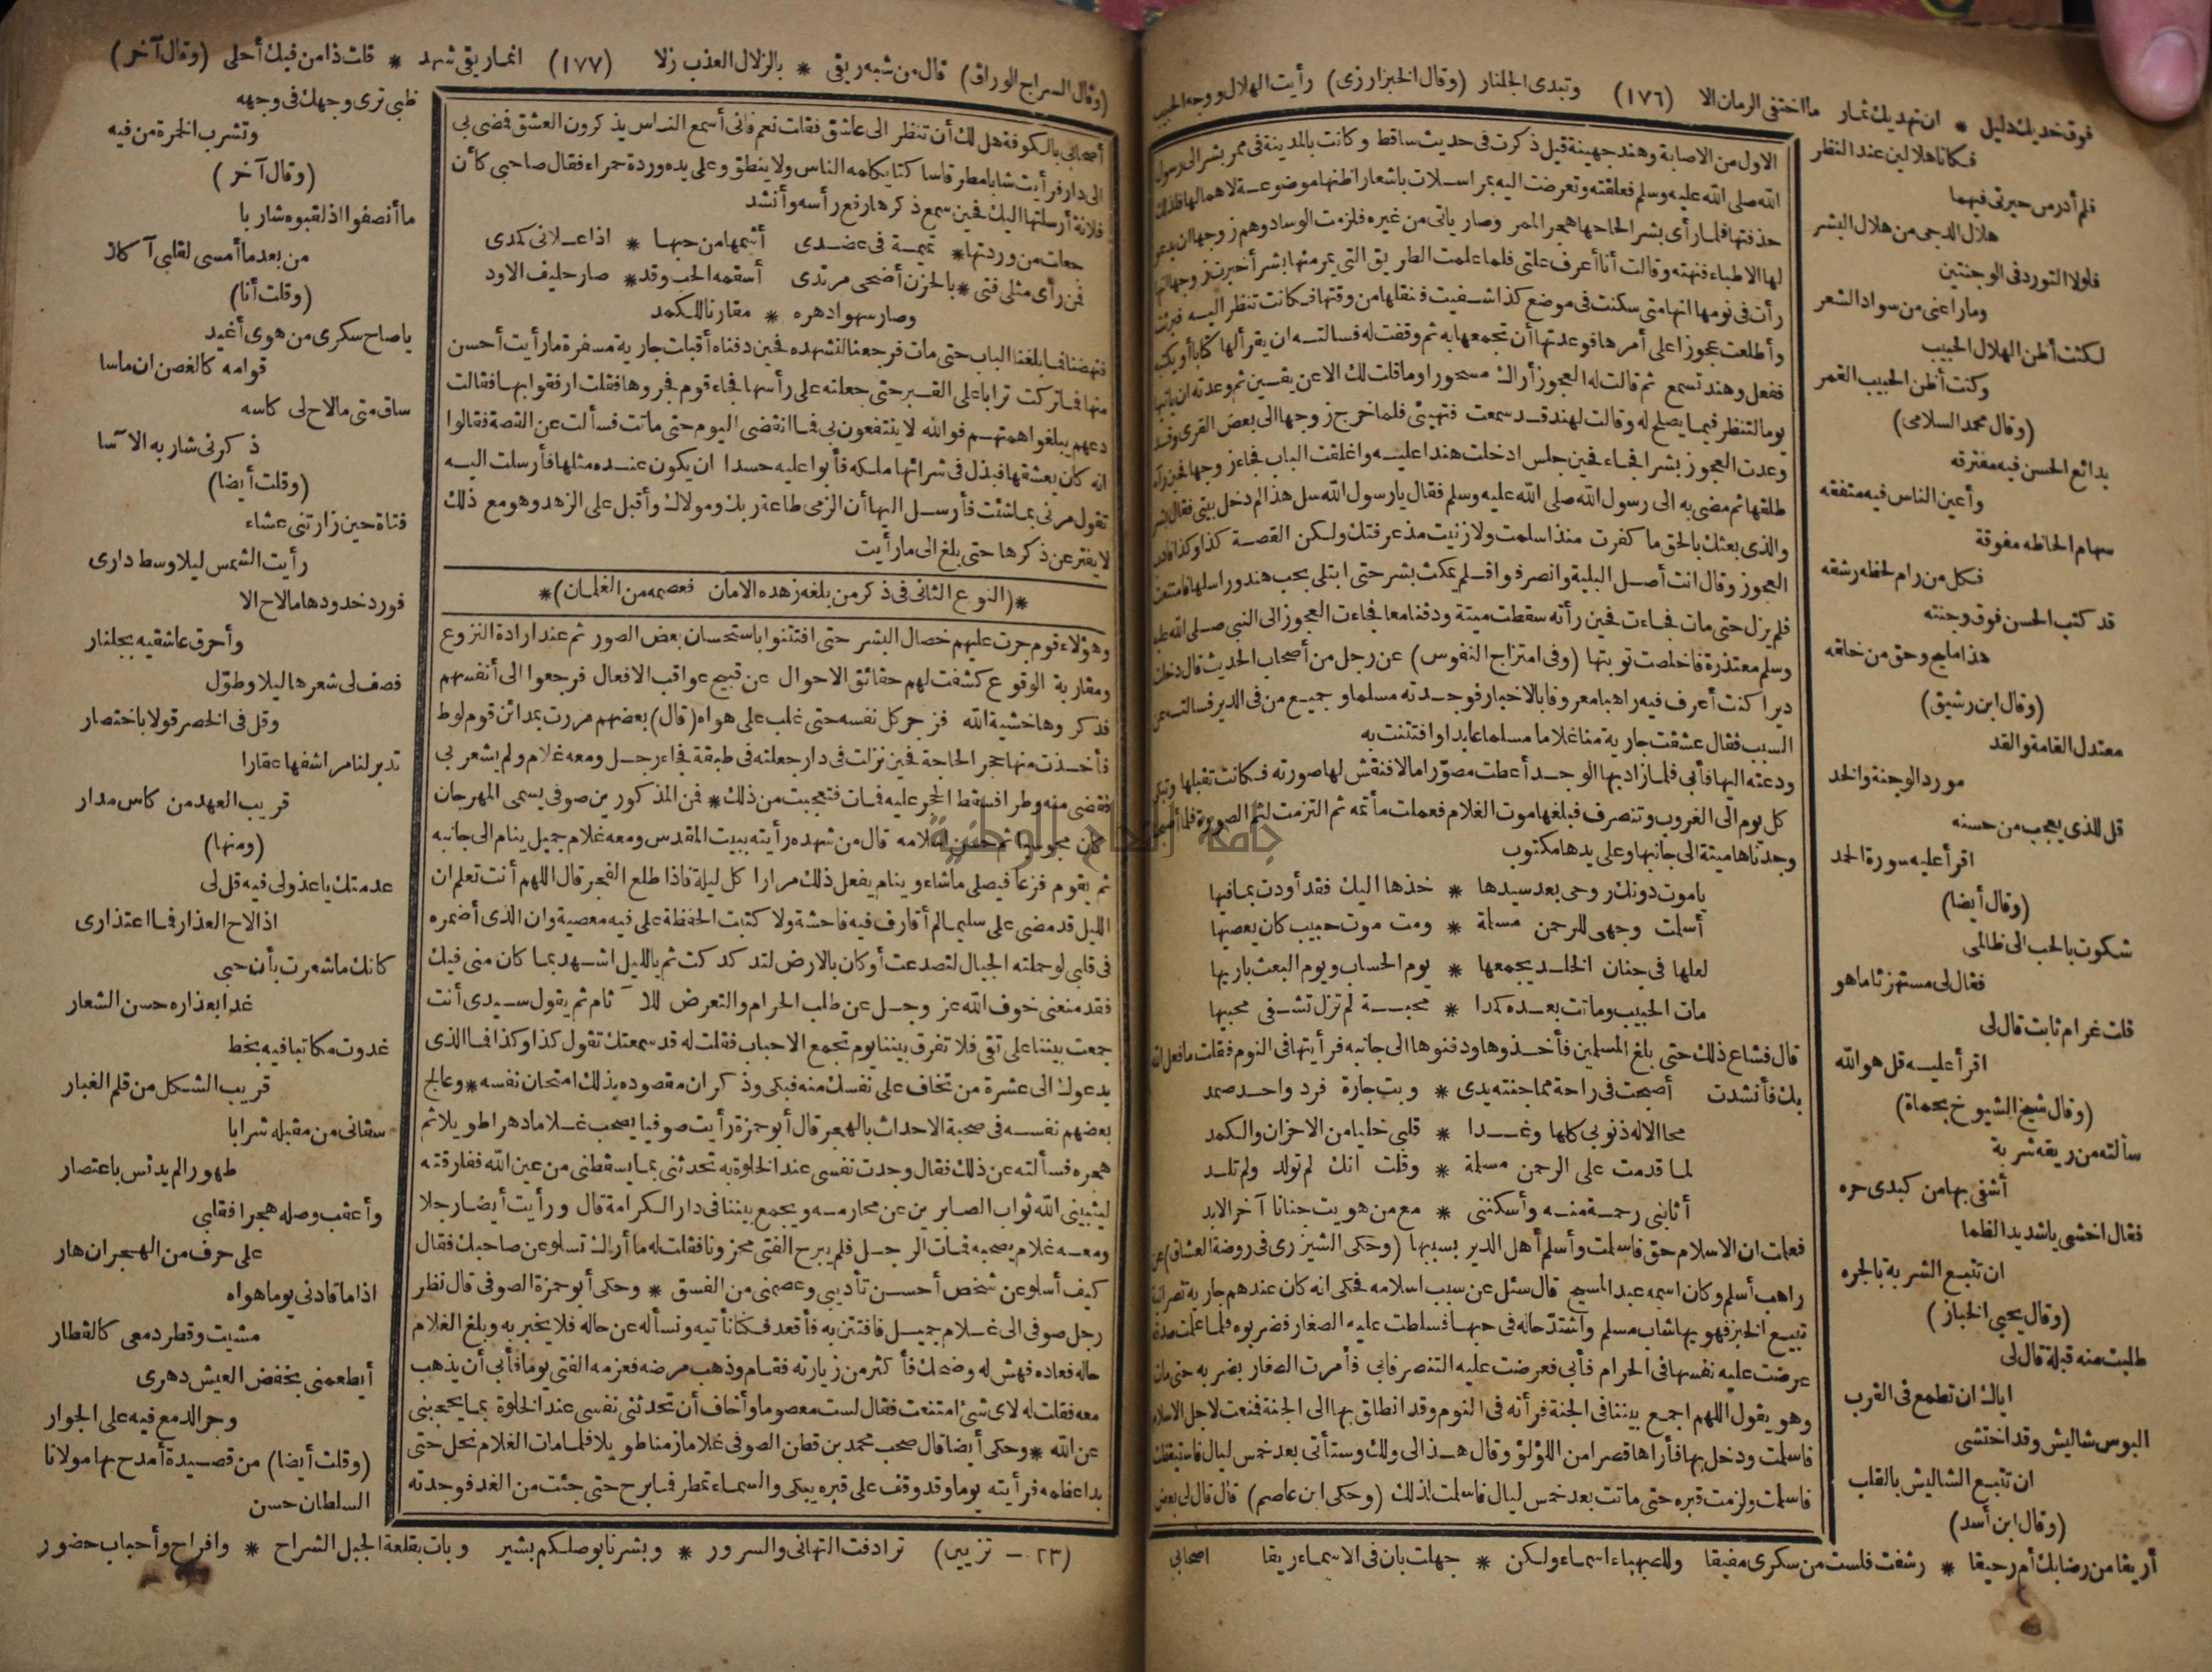 فوق خديك دليل * ان نهديك ثمار ما اختفى الرمان الا (١٧٦) وتبدى الجلنار (وقال الخبزارزى) رأيت الهلال ووجه الحبيب
فكانا هلالين عند النظر
فلم أدر من حيرتى فيهما
هلال الدجى من هلال البشر
فلولا التورد فى الوجنتين
وما راعنى من سواد الشعر
لكنت أظن الهلال الحبيب
وكنت أظن الحبيب القمر
(وقال محمد السلامى)
بدائع الحسن فيه مفترقه
وأعين الناس فيه متفقه
سهام الحاظه مفوقة
فكل من رام لحظه رشقه
قد كتب الحسن فوق وجنته
هذا مليح وحق من خلقه
(وقال ابن رشيق)
معتدل القامة والقد
مورد الوجنة والخد
قل للذى يعجب من حسنه
اقرأ عليه سورة الحمد
(وقال أيضا)
شكوت بالحب الى ظالمى
فقال لى مستهزئا ما هو
قلت غرام ثابت قال لى
اقرأ عليه قل هو الله
(وقال شيخ الشيوخ بحماة)
سألته من ريقه شربة
أشفى بها من كبدى حره
فقال اخشى يا شديد الظما
ان تتبع الشربة بالجره
(وقال يحيى الخباز)
طلبت منه قبلة قال لى
اياك ان تطمع فى القرب
البوس شاليش وقد اختشى
ان تتبع الشاليش بالقلب
(وقال ابن أسد)
الاول من الاصابة وهند جهينة قيل ذكرت فى حديث ساقط وكانت بالمدينة فى ممر بشر الى رسول
الله صلى الله عليه وسلم فعلقته وتعرضت اليه بمراسلات باشعار اظنها موضوعة لاهمالها فلذلك
حذفتها فلما رأى بشر الحاحها هجر الممر وصار ياتى من غيره فلزمت الوساد وهم زوجها ان يدعو
لها الاطباء فنهته وقالت أنا أعرف علتى فلما علمت الطريق التى يمر منها بشر أخبرت زوجها انها
رأت فى نومها انها متى سكنت فى موضع كذا شفيت فنقلها من وقتها فكانت تنظر اليه فبرئت
وأطلعت عجوزا على أمرها فوعدتها أن تجمعها به ثم وقفت له فسالته ان يقرألها كتابا أو يكتب
ففعل وهند تسمع ثم قالت له العجوز أراك مسحورا وما قلت لك الا عن يقين ثم وعدته ان ياتيها
يوما لتنظر فيما يصلح له وقالت لهند قد سمعت فتهيئى فلما خرج زوجها الى بعض القرى وقد
وعدت العجوز بشرا فجاء فحين جلس ادخلت هندا عليه واغلقت الباب فجاء زوجها فحين رآه
طلقها ثم مضى به الى رسول الله صلى الله عليه وسلم فقال يا رسول الله سل هذا لم دخل بيتى فقال بشر
والذى بعثك بالحق ما كفرت منذ اسلمت ولا زنيت مذ عرفتك ولكن القصة كذا وكذا
العجوز وقال انت أصل البلية وانصرفوا فلم يمكث بشر حتى ابتلى بحب هند وراسلها فامتنعت
فلم يزل حتى مات فجاءت فحين رأته سقطت ميتة ودفنا معا فجاءت العجوز الى النبى صلى الله عليه
وسلم معتذرة فاخلصت توبتها (وفى امتزاج النفوس) عن رجل من أصحاب الحديث قال دخلت
ديرا كنت أعرف فيه راهبا معروفا بالاخبار فوجدته مسلما وجميع من فى الدير فسالته عن
السبب فقال عشقت جارية منا غلاما مسلما عابدا وافتتنت به
ودعته اليها فأبى فلما زاد بها الوجد أعطت مصورا مالا فنقش لها صورته فكانت تقبلها وتبكى
كل يوم الى الغروب وتنصرف فبلغها موت الغلام فعملت مأتمه ثم التزمت لثم الصورة فلما أصبحنا
وجدناها ميتة الى جانبها وعلى يدها مكتوب
ياموت دونك روحى بعد سيدها * خذها اليك فقد أودت بما فيها
أسلمت وجهى للرحمن مسلمة * ومت موت حبيب كان يعصيها
لعلها فى جنان الخلد يجمعها * يوم الحساب ويوم البعث باريها
مات الحبيب وماتت بعده كمدا * محبة لم تزل تشفى محبيها
قال فشاع ذلك حتى بلغ المسلمين فأخذوها ودفنوها الى جانبه فرأيتها فى النوم فقلت ما فعل الله
بك فأنشدت أصبحت فى راحة مما جنته يدى * وبت جارة فرد واحد صمد
محا الاله ذنوبى كلها وغدا * قلبى خليا من الاحزان والكمد
لما قدمت على الرحمن مسلمة * وقلت انك لم تولد ولم تلد
أثابنى رحمة منه وأسكننى * مع من هويت جنانا آخر الابد
فعلمت ان الاسلام حق فاسلمت وأسلم أهل الدير بسببها (وحكى الشيزرى فى روضة العشاق) عن
راهب أسلم وكان اسمه عبد المسيح قال سئل عن سبب اسلامه فحكى انه كان عندهم جارية نصرانية
تبيع الخبز فهويها شاب مسلم واشتد حاله فى حبها فسلطت عليه الصغار فضربوه فلما علمت صدقه
عرضت عليه نفسها فى الحرام فأبى فعرضت عليه التنصر فابى فأمرت الصغار بضربه حتى مات
وهو يقول اللهم اجمع بيننا فى الجنة فرأته فى النوم وقد انطلق بها الى الجنة فمنعت لاجل الاسلام
فاسلمت ودخل بها فأراها قصرا من اللؤلؤ وقال هذا لى ولك وستأتى بعد خمس ليال فاستيقظت
فاسلمت ولزمت قبره حتى ماتت بعد خمس ليال فاسلمت لذلك (وحكى ابن عاصم) قال قال لى بعض
أريقا من رضابك أم رحيقا * رشفت فلست من سكرى مفيقا وللصهباء اسماء ولكن * جهلت بان فى الاسماء ريقا اصحابى
(وقال السراج الوراق) قال من شبه ريقى * بالزلال العذب زلا (١٧٧) انما ريقى شهد * قلت ذا من فيك أحلى (وقال آخر)
أصحابى بالكوفة هل لك أن تنظر الى عاشق فقلت نعم فانى أسمع الناس يذكرون العشق فمضى بى
الى دار فرأيت شابا مطرقا ساكتا يكلمه الناس ولا ينطق وعلى يده وردة حمراء فقال صاحبى كأن
فلانة أرسلتها اليك فحين سمع ذكرها رفع رأسه وأنشد
جعلت من وردتها * تميمة فى عضدى أشمها من حبها * اذا علانى كمدى
فمن رأى مثلى فتى * بالحزن أضحى مرتدى أسقمه الحب وقد * صار حليف الاود
وصار سهوا دهره * مقارنا للكمد
فنهضنا فما بلغنا الباب حتى مات فرجعنا لنشهده فحين دفناه أقبلت جارية مسفرة ما رأيت أحسن
منها فما تركت ترابا على القبر حتى جعلته على رأسها فجاء قوم فجروها فقلت ارفقوا بها فقالت
دعهم يبلغوا همتهم فوالله لا ينتفعون بى فما انقضى اليوم حتى ماتت فسألت عن القصة فقالوا
انه كان يعشقها فبذل فى شرائها ملكه فأبوا عليه حسدا ان يكون عنده مثلها فأرسلت اليه
تقول مرنى بما شئت فأرسل اليها أن الزمى طاعة ربك ومولاك وأقبل على الزهد وهو مع ذلك
لا يفتر عن ذكرها حتى بلغ الى ما رأيت
*(النوع الثانى فى ذكر من بلغه زهده الامان فعصمه من الغلمان)*
وهؤلاء قوم جرت عليهم خصال البشر حتى افتتنوا باستحسان بعض الصور ثم عند ارادة النزوع
ومقاربة الوقوع كشفت لهم حقائق الاحوال عن قبيح عواقب الافعال فرجعوا الى أنفسهم
فذكروها خشية الله فزجر كل نفسه حتى غلب على هواه (قال) بعضهم مررت بمدائن قوم لوط
فأخذت منها حجر الحاجة فحين نزلت فى دار جعلته فى طبقة فجاء رجل ومعه غلام ولم يشعر بى
فقضى منه وطرا فسقط الحجر عليه فمات فتعجبت من ذلك * فمن المذكورين صوفى يسمى المهرجان
كان مجوسيا ثم حسن اسلامه قال من شهده رأيته ببيت المقدس ومعه غلام جميل ينام الى جانبه
ثم يقوم فزعا فيصلى ما شاء وينام يفعل ذلك مرارا كل ليلة فاذا طلع الفجر قال اللهم أنت تعلم ان
الليل قد مضى على سليما لم أقارف فيه فاحشة ولا كتبت الحفظة على فيه معصية وان الذى أضمره
فى قلبى لو حملته الجبال لتصدعت أو كان بالارض لتدكدكت ثم ياليل اشهد بما كان منى فيك
فقد منعنى خوف الله عز وجل عن طلب الحرام والتعرض للآثام ثم يقول سيدى أنت
جمعت بيننا على تقى فلا تفرق بيننا يوم تجمع الاحباب فقلت له قد سمعتك تقول كذا وكذا فما الذى
يدعوك الى عشرة من تخاف على نفسك منه فبكى وذكر ان مقصوده بذلك امتحان نفسه * وعالج
بعضهم نفسه فى صحبة الاحداث بالهجر قال أبو حمزة رأيت صوفيا يصحب غلاما دهرا طويلا ثم
هجره فسألته عن ذلك فقال وجدت نفسى عند الخلوة به تحدثنى بما يسقطنى من عين الله ففارقته
ليثيبنى الله ثواب الصابرين عن محارمه ويجمع بيننا فى دار الكرامة قال ورأيت أيضا رجلا
ومعه غلام يصحبه فمات الرجل فلم يبرح الفتى محزونا فقلت له ما أراك تسلو عن صاحبك فقال
كيف أسلو عن شخص أحسن تأديبى وعصمنى من الفسق * وحكى أبو حمزة الصوفى قال نظر
رجل صوفى الى غلام جميل فافتتن به فأقعد فكنا نأتيه ونسأله عن حاله فلا يخبر به وبلغ الغلام
حاله فعاده فهش له وضحك فأكثر من زيارته فقام وذهب مرضه فعزمه الفتى يوما فأبى أن يذهب
معه فقلت له لاى شئ امتنعت فقال لست معصوما وأخاف أن تحدثنى نفسى عند الخلوة بما يحجبنى
عن الله * وحكى أيضا قال صحب محمد بن قطن الصوفى غلاما زمنا طويلا فلما مات الغلام نحل حتى
بدا عظمه فرأيته يوما وقد وقف على قبره يبكى والسماء تمطر فما برح حتى جئت من الغد فوجدته
ظبى ترى وجهك فى وجهه
وتشرب الخمرة من فيه
(وقال آخر)
ما أنصفوا اذ لقبوه شاربا
من بعد ما أمسى لقلبى آكلا
(وقلت أنا)
يا صاح سكرى من هوى أغيد
قوامه كالغصن ان ماسا
ساق متى ما لاح لى كاسه
ذكرنى شاربه الآسا
(وقلت أيضا)
فتاة حين زارتنى عشاء
رأيت الشمس ليلا وسط دارى
فورد خدودها مالاح الا
وأحرق عاشقيه بجلنار
فصف لى شعرها ليلا وطوّل
وقل فى الخصر قولا باختصار
تدير لنا مراشفها عقارا
قريب العهد من كاس مدار
(ومنها)
عدمتك يا عذولى فيه قل لى
اذا لاح العذار فما اعتذارى
كانك ما شعرت بأن حبى
غدا بعذاره حسن الشعار
غدوت مكاتبا فيه بخط
قريب الشكل من قلم الغبار
سقانى من مقبله شرابا
طهورا لم يدنس باعتصار
وأعقب وصله هجرا فقلبى
على حرف من الهجران هار
اذا ما قادنى يوما هواه
مشيت وقطر دمعى كالقطار
أيطعمنى بخفض العيش دهرى
وجر الدمع فيه على الجوار
(وقلت أيضا) من قصيدة أمدح بها مولانا
السلطان حسن
(٢٣ - تزيين) ترادفت التهانى والسرور * وبشرنا بوصلكم بشير وبات بقلعة الجبل انشراح * وافراح وأحباب حضور
جامعة النجاح الوطنية